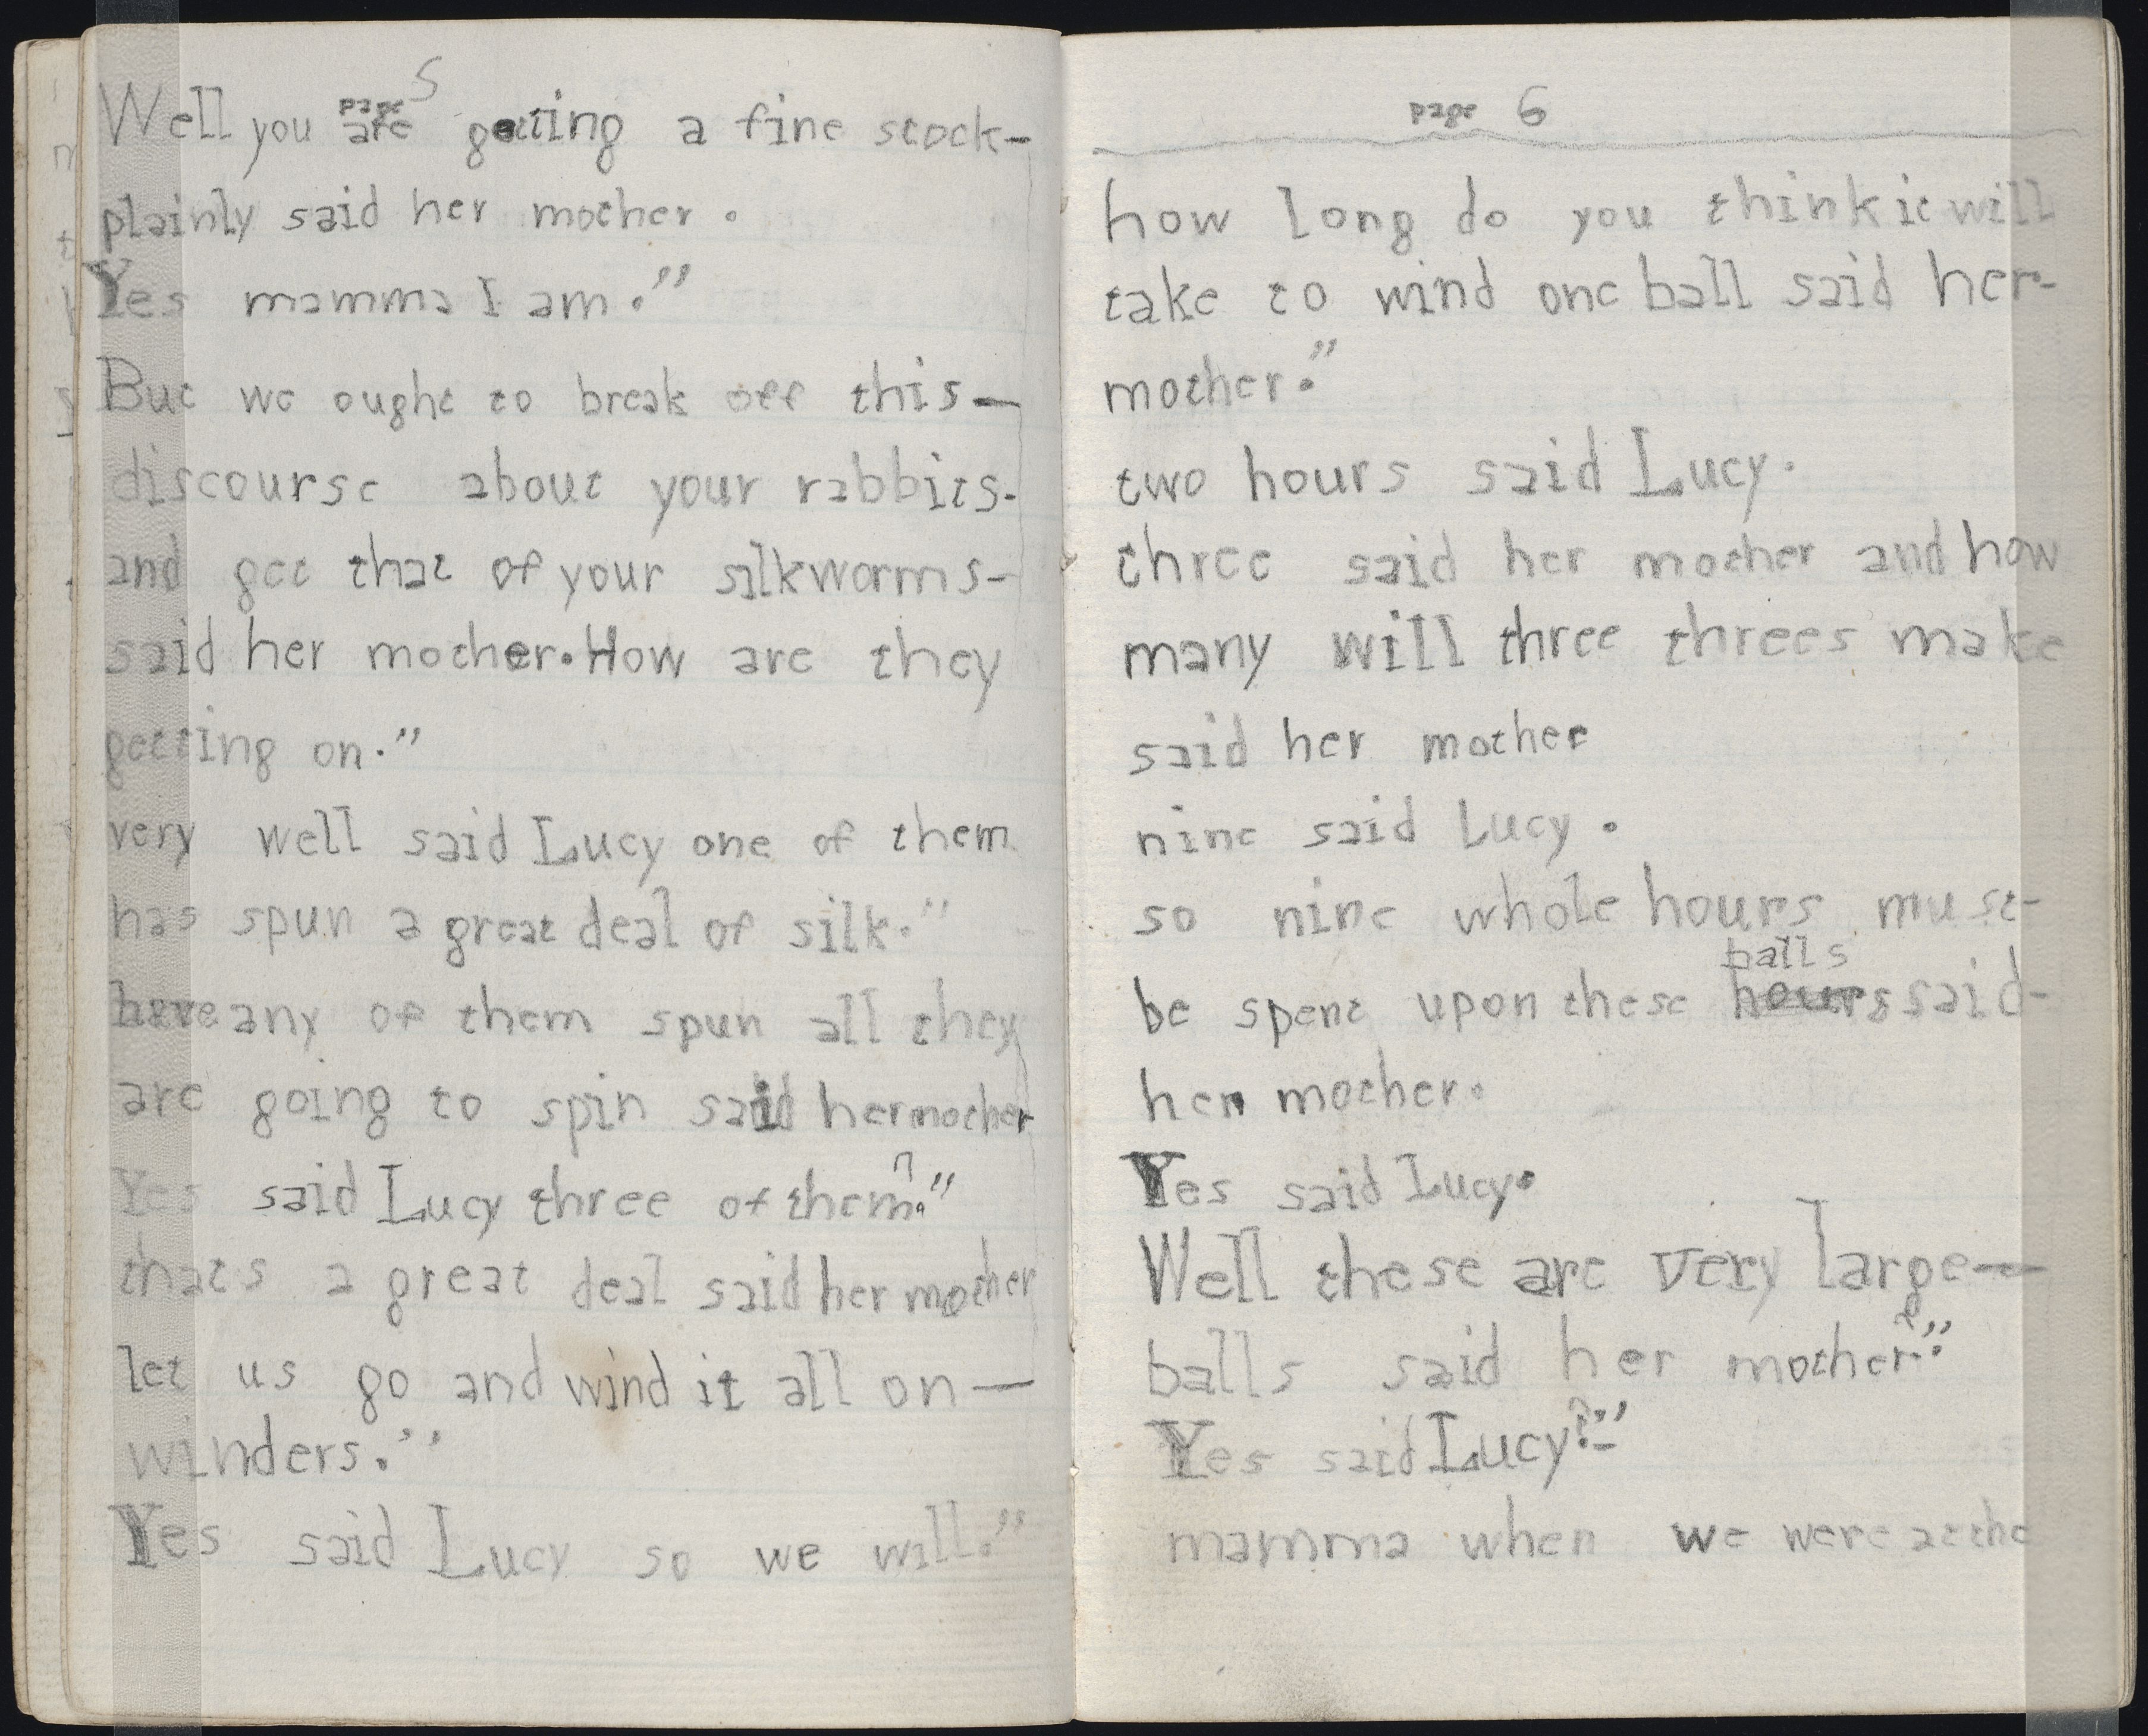 page 5
Well you are getting a fine stock-
plainly said her mother.
Yes mamma I am."
But we ought to break off this-
discourse about your rabbits-
and get that of your silkworms-
said her mother. How are they
getting on."
very well said Lucy one of them
has spun a great deal of silk."
have any of them spun all they
are going to spin said her mother
Yes said Lucy three of them?"
thats a great deal said her mother
let us go and wind it all on-
winders."
Yes said Lucy so we will."
page 6
how long do you think it will
take to wind one ball said her-
mother."
two hours said Lucy.
three said her mother and how
many will three threes make
said her mother
nine said Lucy.
so nine whole hours must-
balls
be spent upon these hours said-
her mother.
Yes said Lucy.
Well these are very large-
balls said her mother?"
Yes said Lucy?"
mamma when we were at the